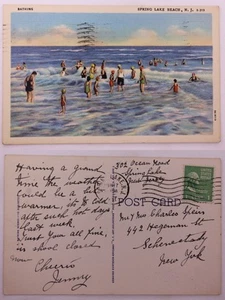 BATHING
SPRING LAKE BEACH, N. J.
Having a grand
time the weather
could be a bit
warmer, its cold
after such hot days
last week.
Trust your all fine,
is school closed
now
Cheerio
Jimmy
302 Ocean Road
Spring Lake
New Jersey
POST CARD
Mr & Mrs Charles
442 Hegeman St
Schenectady
New York